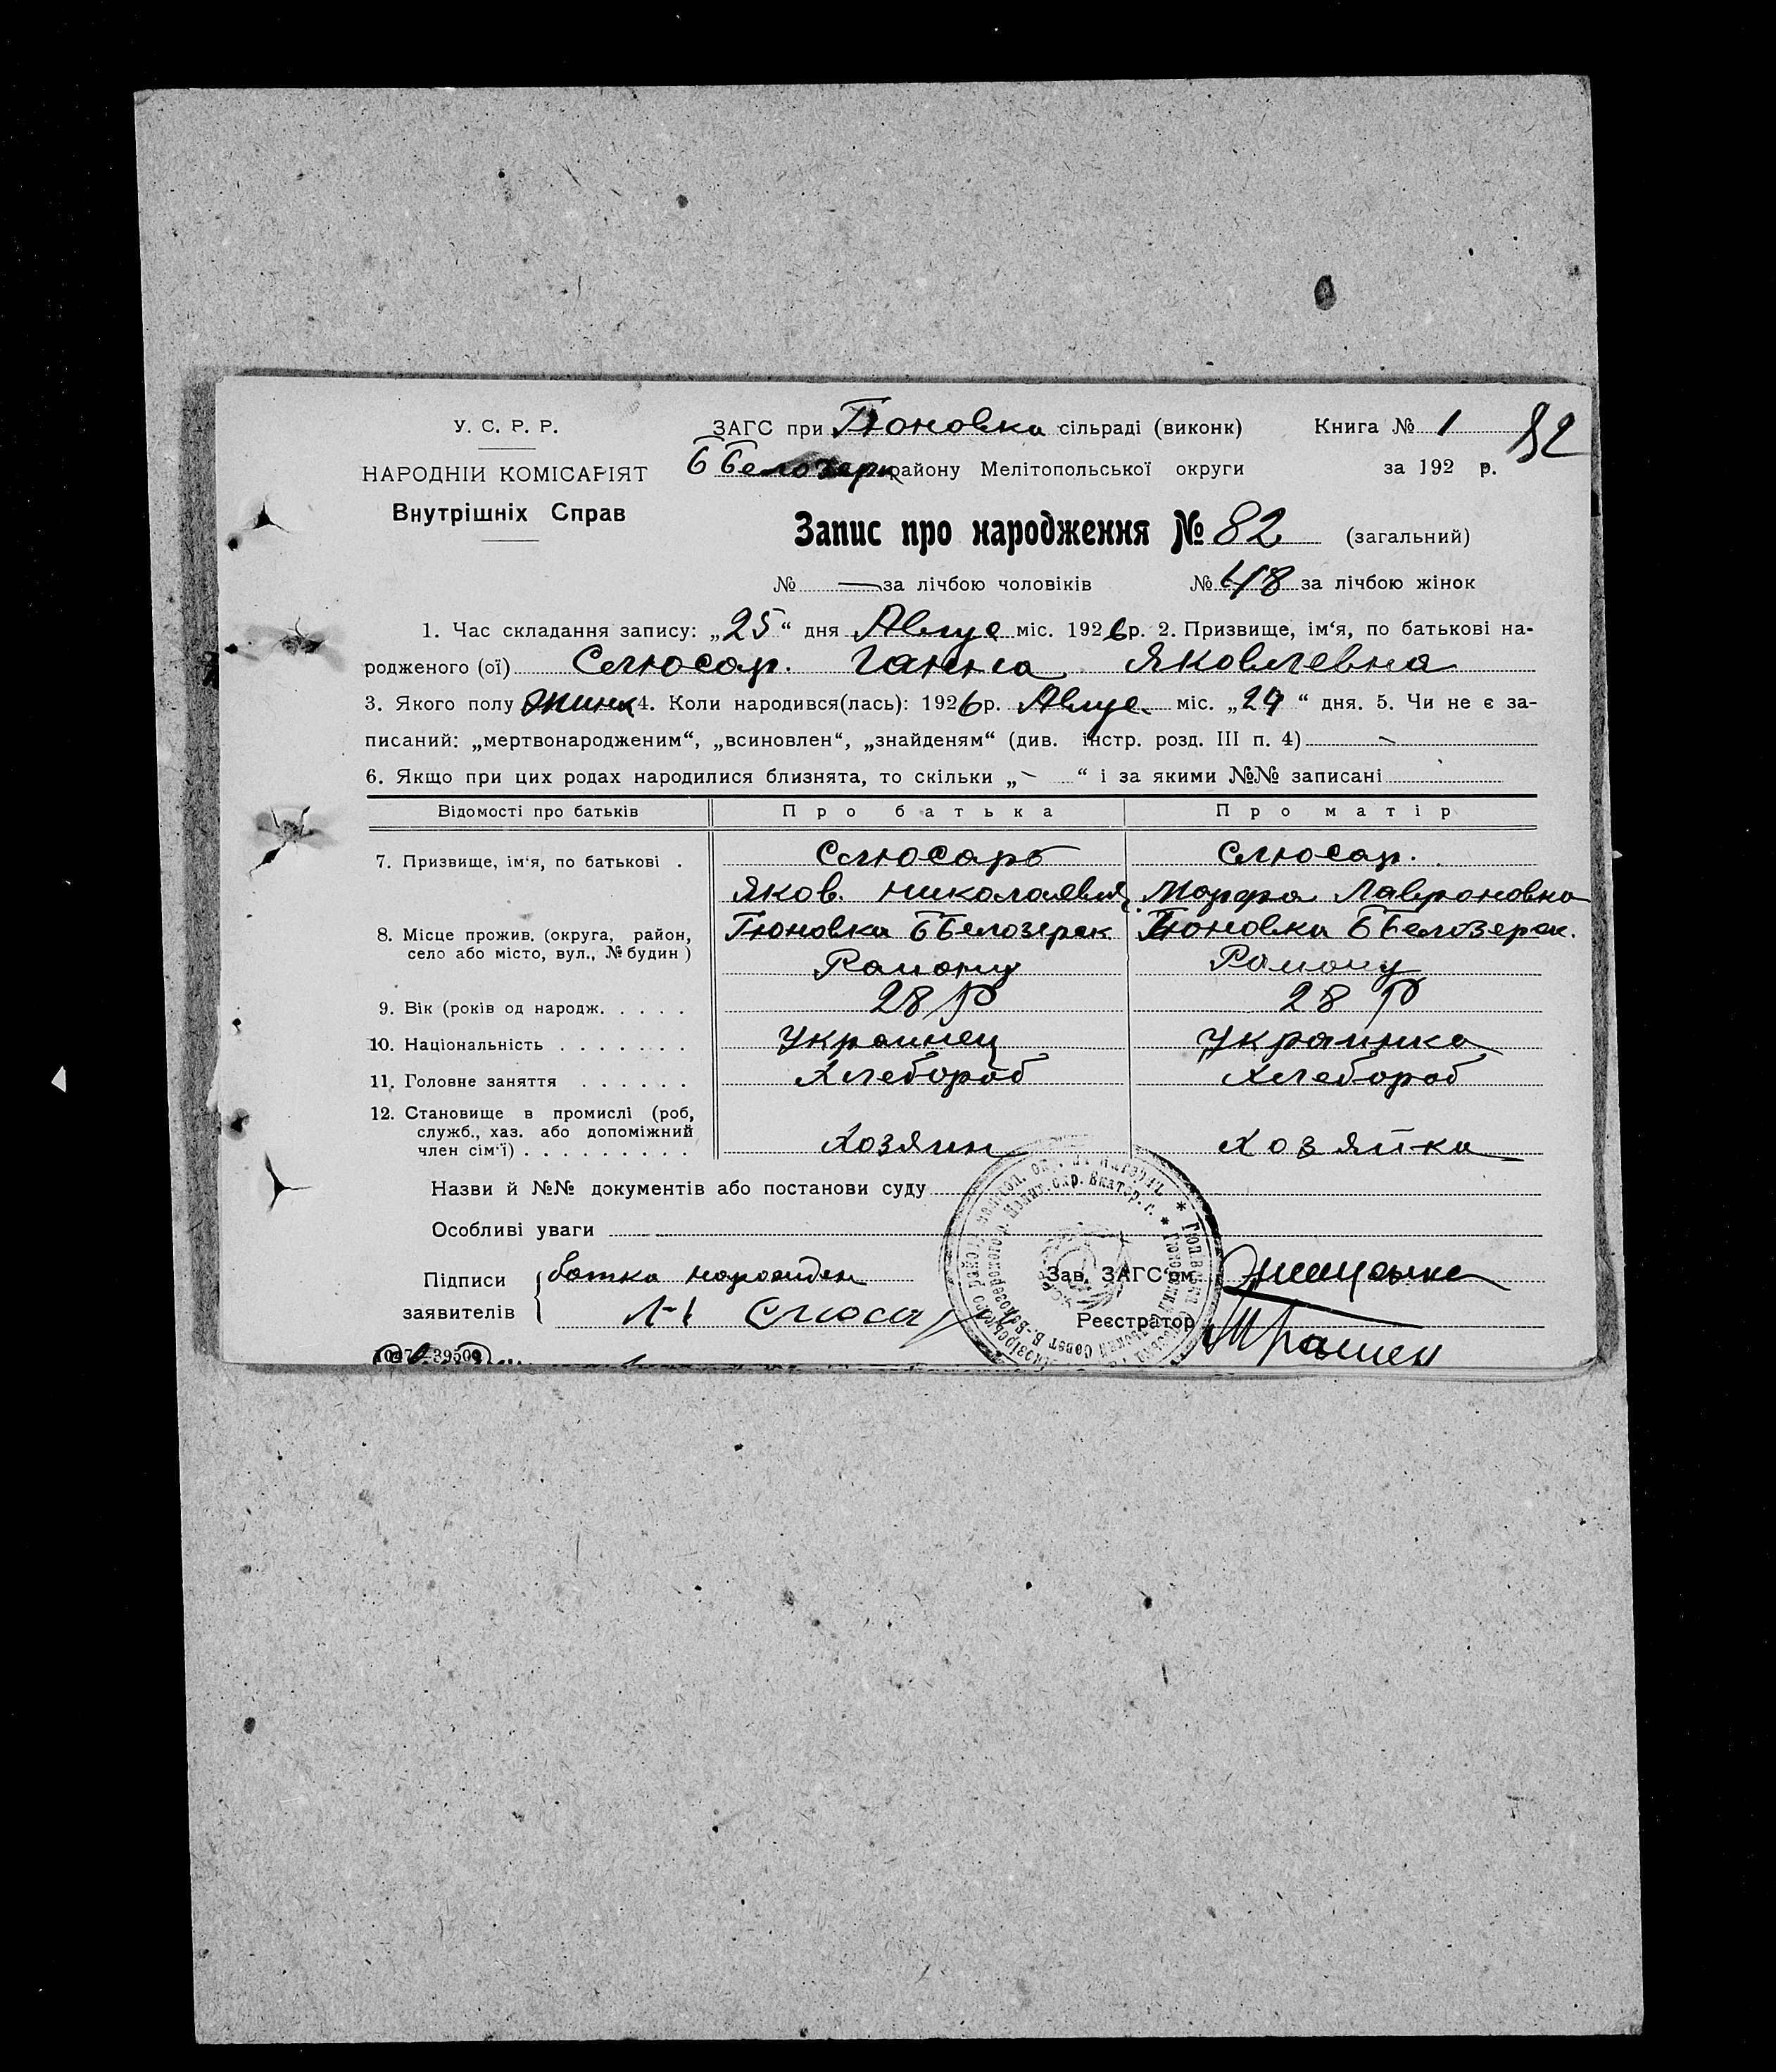 У. С. Р. Р.
НАРОДНІЙ КОМІСАРІЯТ
Внутрішніх Справ
ЗАГС при Гюновка сільраді (виконк)
Б Белозерк району Мелітопольської округи
Книга № 1
82
за 192 р.
Запис про народження № 82 (загальний)
№ — за лічбою чоловіків № 48 за лічбою жінок
1. Час складання запису: „25“ дня Авгус міс. 1926 р. 2. Призвище, ім‘я, по батькові на-
родженого (ої) Слюсар. Ганна Яковлевна
3. Якого полу жинк 4. Коли народився(лась): 1926 р. Авгус. міс. „24“ дня. 5. Чи не є за-
писаний: „мертвонародженим“, „всиновлен“, „знайденям“ (див. інстр. розд. III п. 4) —
6. Якщо при цих родах народилися близнята, то скільки „—“ і за якими №№ записані
Відомості про батьків Про батька Про матір
7. Призвище, ім‘я, по батькові . Слюсарь Слюсар.
Яков. Николаевич Марфа Лавроновна
8. Місце прожив. (округа, район, Гюновка Б Белозерск Гюновка Б Белозерск.
село або місто, вул., № будин) Району Району
9. Вік (років од народж. . . . . 28 р 28 р
10. Національність . . . . . . . Украинец Украинка
11. Головне заняття . . . . . . Хлебороб Хлебороб
12. Становище в промислі (роб,
служб., хаз. або допоміжний
член сім‘ї) . . . . . . . . . Хозяин Хозяйка
Назви й №№ документів або постанови суду
Особливі уваги
Підписи
заявителів
батка
Слюсар
Зав. ЗАГС‘ом
Реєстратор